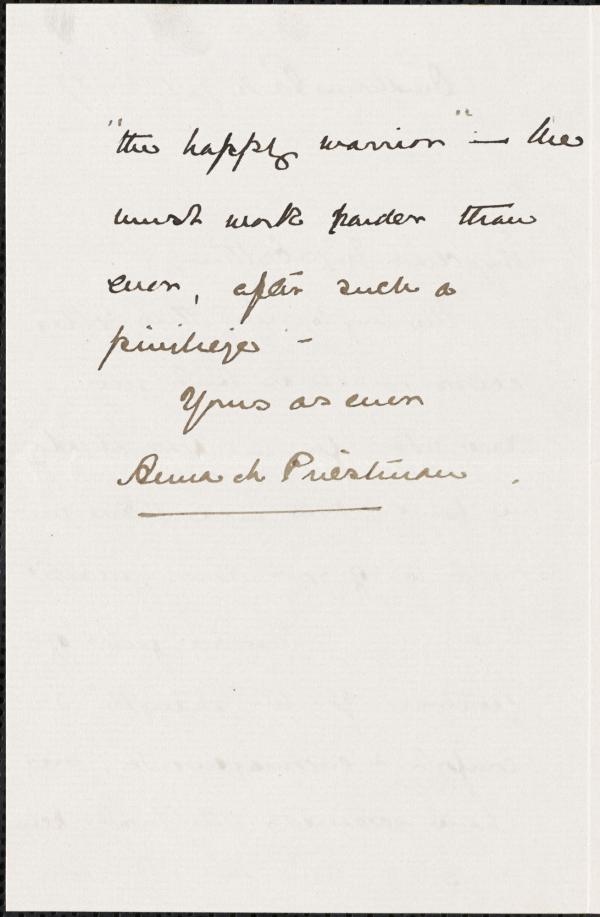 "the happy warrior" — he
must work harder than
ever, after such a
privilege –
Yours as ever
Anna M Priestman.